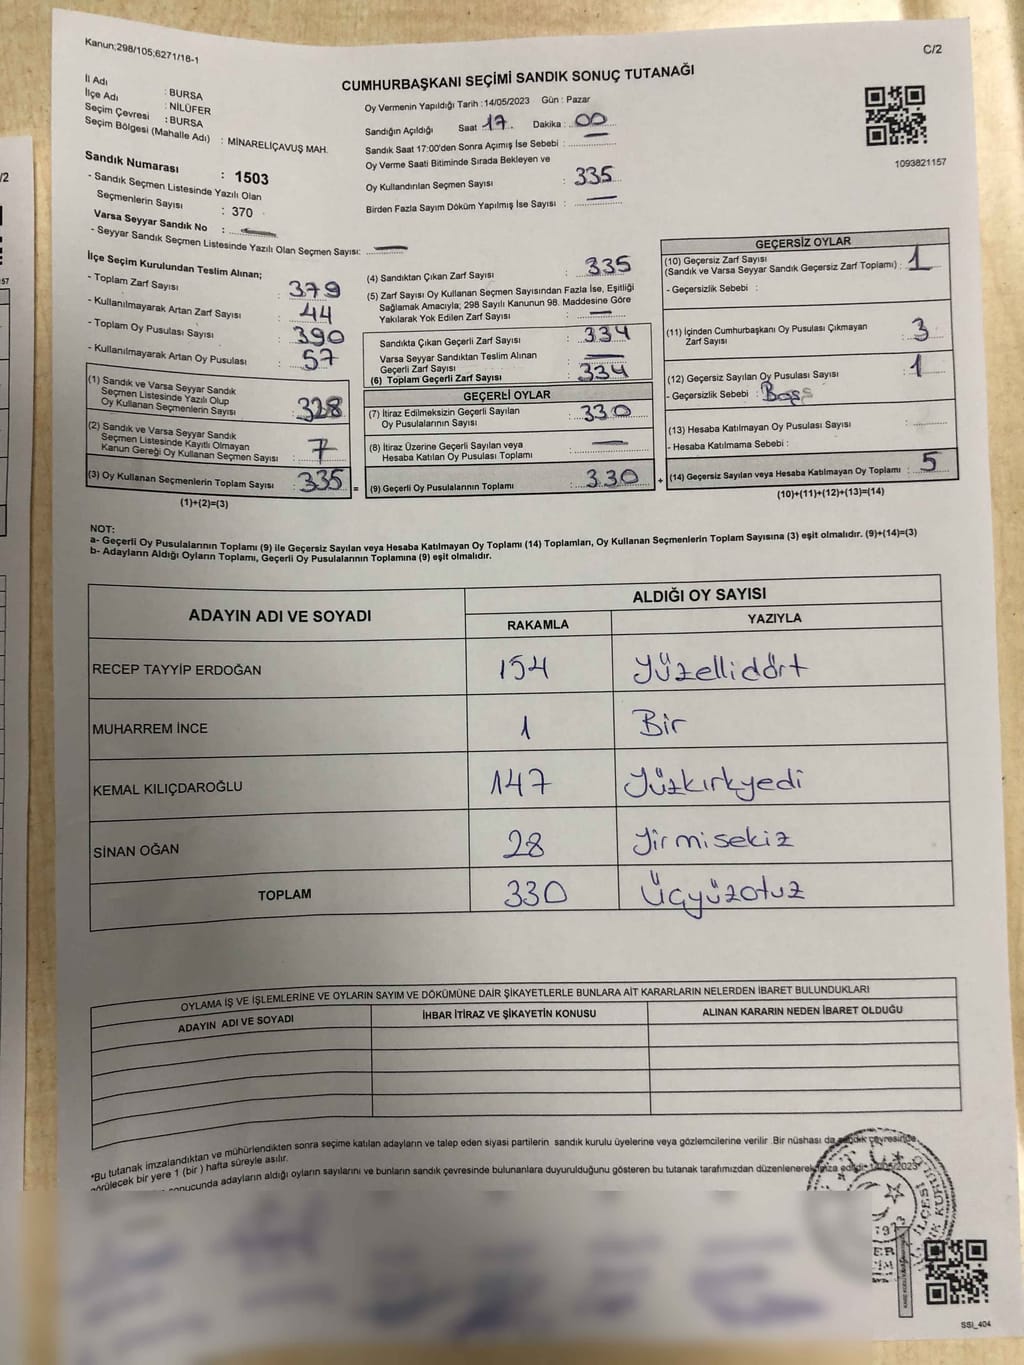 Kanun;298/105;6271/18-1
C/2
CUMHURBAŞKANI SEÇİMİ SANDIK SONUÇ TUTANAĞI
İl Adı : BURSA
İlçe Adı : NİLÜFER
Seçim Çevresi : BURSA
Seçim Bölgesi (Mahalle Adı) : MİNARELİÇAVUŞ MAH.
Sandık Numarası : 1503
- Sandık Seçmen Listesinde Yazılı Olan
Seçmenlerin Sayısı : 370
Varsa Seyyar Sandık No : —
- Seyyar Sandık Seçmen Listesinde Yazılı Olan Seçmen Sayısı: —
Oy Vermenin Yapıldığı Tarih :14/05/2023 Gün : Pazar
Sandığın Açıldığı Saat 17. Dakika : 00
Sandık Saat 17:00'den Sonra Açımış İse Sebebi : —
Oy Verme Saati Bitiminde Sırada Bekleyen ve
Oy Kullandırılan Seçmen Sayısı : 335
Birden Fazla Sayım Döküm Yapılmış İse Sayısı : —
1093821157
İlçe Seçim Kurulundan Teslim Alınan;
- Toplam Zarf Sayısı : 379
- Kullanılmayarak Artan Zarf Sayısı : 44
- Toplam Oy Pusulası Sayısı : 390
- Kullanılmayarak Artan Oy Pusulası : 57
(1) Sandık ve Varsa Seyyar Sandık
Seçmen Listesinde Yazılı Olup
Oy Kullanan Seçmenlerin Sayısı : 328
(2) Sandık ve Varsa Seyyar Sandık
Seçmen Listesinde Kayıtlı Olmayan
Kanun Gereği Oy Kullanan Seçmen Sayısı : 7
(3) Oy Kullanan Seçmenlerin Toplam Sayısı : 335 =
(1)+(2)=(3)
(4) Sandıktan Çıkan Zarf Sayısı : 335
(5) Zarf Sayısı Oy Kullanan Seçmen Sayısından Fazla İse, Eşitliği
Sağlamak Amacıyla; 298 Sayılı Kanunun 98. Maddesine Göre
Yakılarak Yok Edilen Zarf Sayısı : —
Sandıkta Çıkan Geçerli Zarf Sayısı : 334
Varsa Seyyar Sandıktan Teslim Alınan
Geçerli Zarf Sayısı : —
(6) Toplam Geçerli Zarf Sayısı : 334
GEÇERLİ OYLAR
(7) İtiraz Edilmeksizin Geçerli Sayılan
Oy Pusulalarının Sayısı : 330
(8) İtiraz Üzerine Geçerli Sayılan veya
Hesaba Katılan Oy Pusulası Toplamı : —
(9) Geçerli Oy Pusulalarının Toplamı : 330 +
GEÇERSİZ OYLAR
(10) Geçersiz Zarf Sayısı
(Sandık ve Varsa Seyyar Sandık Geçersiz Zarf Toplamı) : 1
- Geçersizlik Sebebi :
(11) İçinden Cumhurbaşkanı Oy Pusulası Çıkmayan
Zarf Sayısı : 3
(12) Geçersiz Sayılan Oy Pusulası Sayısı : 1
- Geçersizlik Sebebi :
(13) Hesaba Katılmayan Oy Pusulası Sayısı :
- Hesaba Katılmama Sebebi :
(14) Geçersiz Sayılan veya Hesaba Katılmayan Oy Toplamı : 5
(10)+(11)+(12)+(13)=(14)
NOT:
a- Geçerli Oy Pusulalarının Toplamı (9) ile Geçersiz Sayılan veya Hesaba Katılmayan Oy Toplamı (14) Toplamları, Oy Kullanan Seçmenlerin Toplam Sayısına (3) eşit olmalıdır. (9)+(14)=(3)
b- Adayların Aldığı Oyların Toplamı, Geçerli Oy Pusulalarının Toplamına (9) eşit olmalıdır.
ADAYIN ADI VE SOYADI
ALDIĞI OY SAYISI
RAKAMLA YAZIYLA
RECEP TAYYİP ERDOĞAN 154 Yüzellidört
MUHARREM İNCE 1 Bir
KEMAL KILIÇDAROĞLU 147 Yüzkırkyedi
SİNAN OĞAN 28 Yirmisekiz
TOPLAM 330 Üçyüzotuz
OYLAMA İŞ VE İŞLEMLERİNE VE OYLARIN SAYIM VE DÖKÜMÜNE DAİR ŞİKAYETLERLE BUNLARA AİT KARARLARIN NELERDEN İBARET BULUNDUKLARI
ADAYIN ADI VE SOYADI İHBAR İTİRAZ VE ŞİKAYETİN KONUSU ALINAN KARARIN NEDEN İBARET OLDUĞU
*Bu tutanak imzalandıktan ve mühürlendikten sonra seçime katılan adayların ve talep eden siyasi partilerin sandık kurulu üyelerine veya gözlemcilerine verilir .Bir nüshası da sandık çevresinde
görülecek bir yere 1 (bir ) hafta süreyle asılır.
sonucunda adayların aldığı oyların sayılarını ve bunların sandık çevresinde bulunanlara duyurulduğunu gösteren bu tutanak tarafımızdan düzenlenerek imza edildi. 14/05/2023
SSI_404